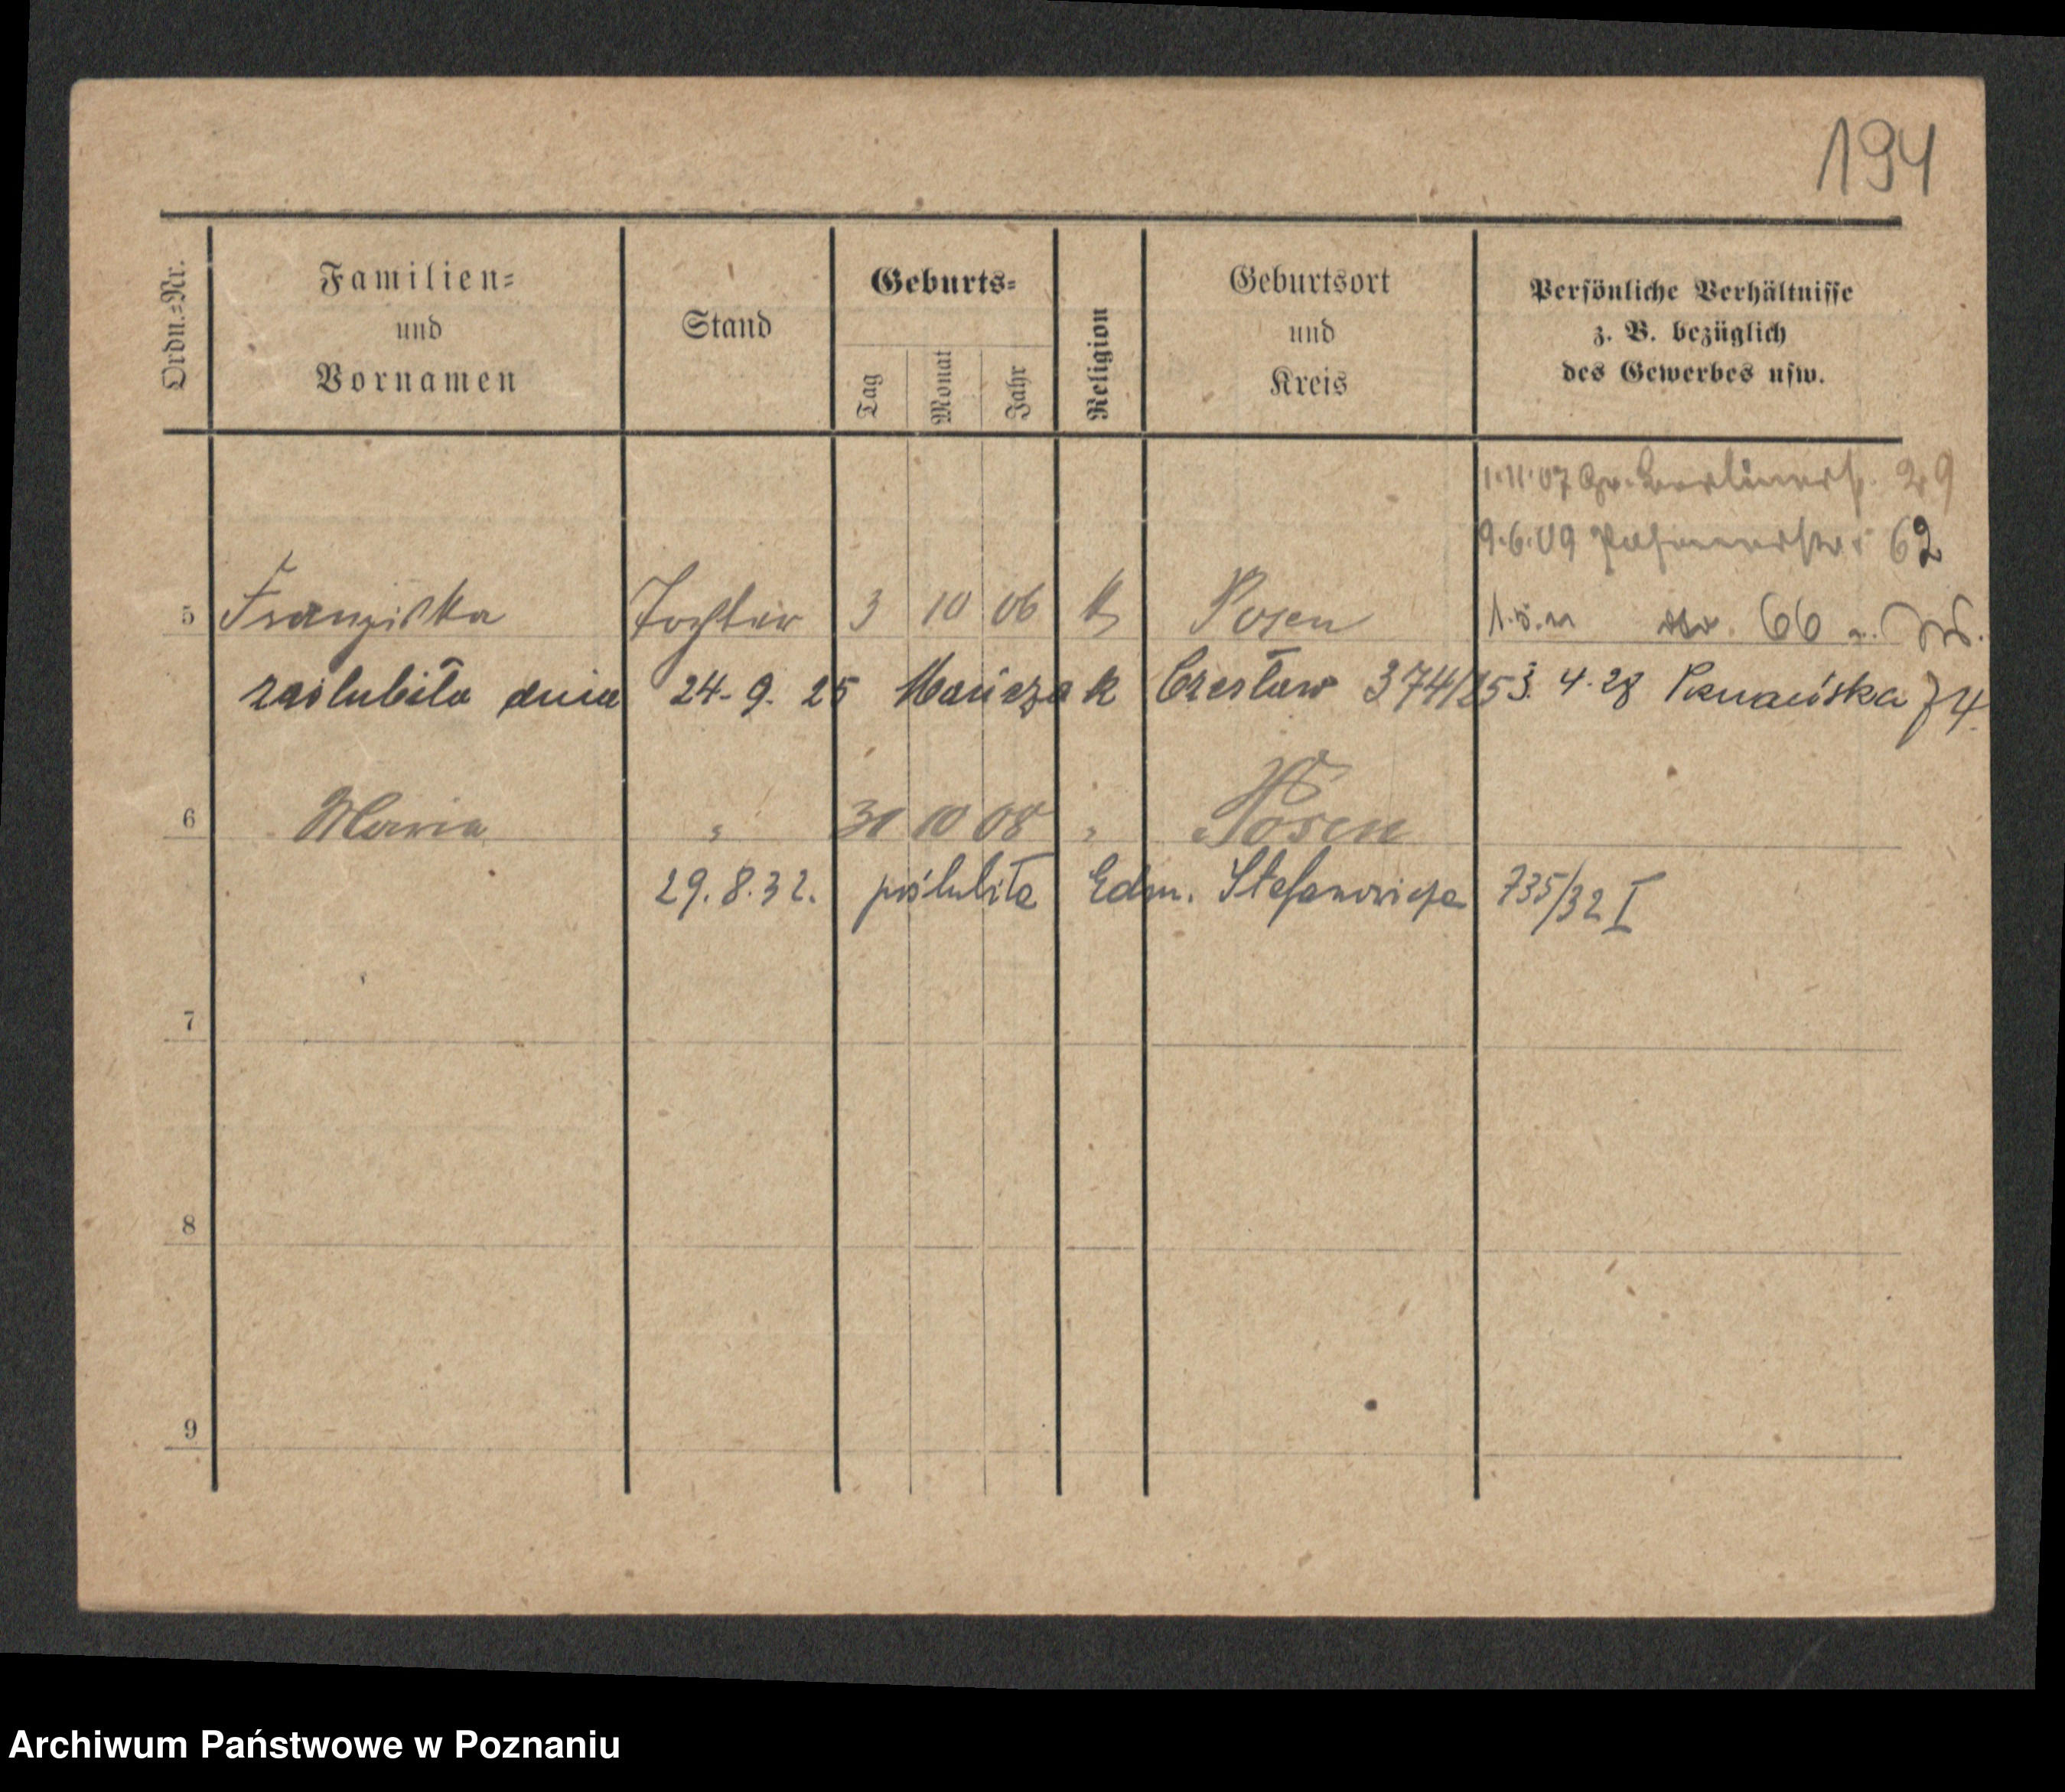 194
Ordn.-Nr.
Familien-
und
Vornamen
Stand
Geburts-
Tag
Monat
Jahr
Religion
Geburtsort
und
Kreis
Persönliche Verhältnisse
z. B. bezüglich
des Gewerbes usw.
1.11.07 Gr. Berlinerstr. 29
9.6.09 Posenerstr. 62
5 Franziska Tochter 3 10 06 k Posen 1.5.11 66
zaślubiła dnia 24.9.25 Mańczak Czesław 374/25 3.4.28 Poznańska 74.
6 Maria " 31 10 08 " Posen
29.8.32. poślubiła Edm. Stefanowicza 735/32 I
7
8
9
Archiwum Państwowe w Poznaniu